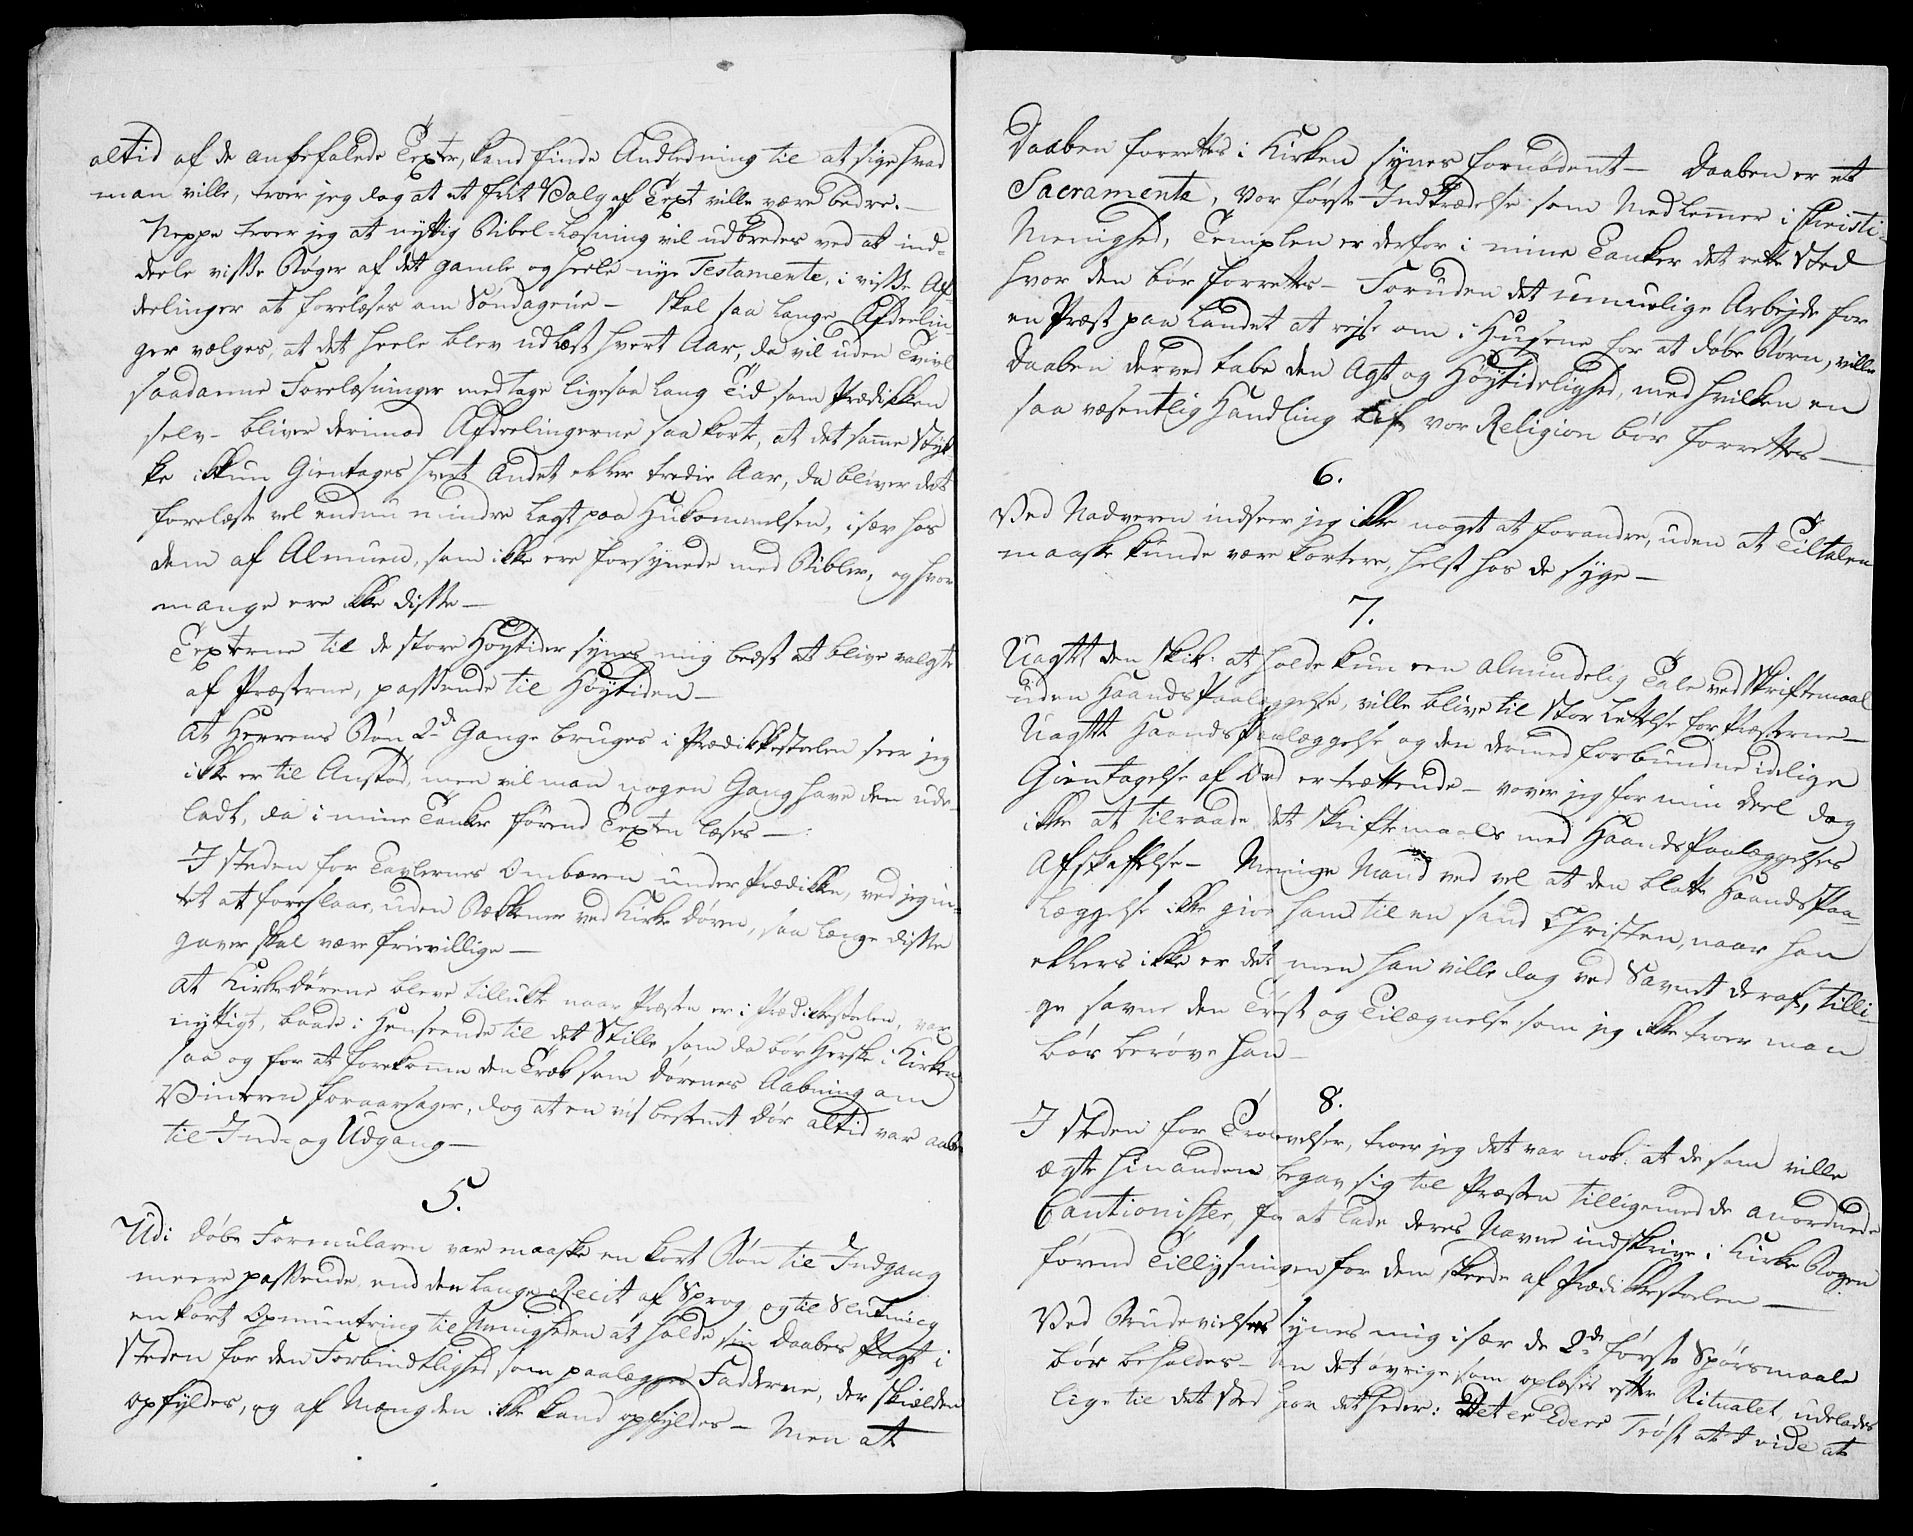 altid af de anbefalede Texter, kand finde Andledning til at sige hvad
man ville, troer jeg dog at et frit Valg af Text ville være bedre. —
Neppe troer jeg at nyttig Bibel-Læsning vil udbredes ved at ind-
deele visse Bøger af det gamle og heele nye Testamente, i visse Af-
deelinger at forelæses om Søndagene — Skal saa lange Afdeelin-
ger vælges, at det heele blev udlæst hvert Aar, da vil uden Tvivl
saadanne Forelæsninger medtage ligesaa lang Tid som Prædikken
selv — bliver derimod Afdeelingerne saa korte, at det samme Støk-
ke ikkun Gientages hvert Andet eller tredie Aar, da bliver det
forelæste vel endnu mindre lagt paa Hukommelsen, især hos
dem af Almuen, som ikke ere forsynede med Bibler, og hvor
mange ere ikke disse —
Texterne til de store Høytider synes mig best at blive valgte
af Præsterne, passende til Høytiden —
At Herrens Bøn 2de Gange bruges i Prædikkestoelen seer jeg
ikke er til Anstød, men vil man nogen Gang have den ude-
ladt, da i mine Tanker førend Texten læses —
I steden for Tavlernes Ombæren under Prædikken, ved jeg in-
tet at foreslaae, uden Bækkener ved Kirke Døren, saa længe disse
gaver skal være frievillige —
At Kirkedørene bleve tillukte naar Præsten er i Prædikkestoelen, var
nyttigt, baade i Henseende til det Stille som da bør Herske i Kirken
saa og for at forekomme den Træk som Dørenes Aabning om
Vinteren foraarsager, dog at en vis bestemt Dør altid var aaben
til Ind- og Udgang —
5.
Udi Døbe Formularen var maaske en kort Bøn til Indgang
meere passende end den lange Recit af Sprog og til Slutning
en kort Opmuntring til Menigheden at holde sin Daabes Pagt i
steden for den Forbindtlighed som paalægges Fadderne, der skielden
opfyldes, og af Mængden ikke kand opfyldes — Men at
Daaben forrettes i Kirken synes fornødent — Daaben er et
Sacramente, vor første Indtrædelse som Medlemmer i Christi
Menighed, Templen er derfor i mine Tanker det rette Sted
hvor den bør forrettes — Foruden det umuelige Arbejde for
en Præst paa Landet at rejse om i Husene for at døbe Børn, ville
Daaben derved tabe den Agt og Høytidelighed, med hvilken en
saa væsentlig Handling af vor Religion bør forrettes —
6.
Ved Nadveren indseer jeg ikke noget at forandre, uden at Tiltalen
maaske kunde være kortere, helst hos de syge —
7.
Uagtet den Skik at holde kun een almindelig Tale ved Skriftemaal
uden Haands Paalæggelse, ville blive til stor Lettelse for Præsterne —
Uagtet Haands Paalæggelse og den dermed forbundne idelige
Gientagelse af Ord er trættende — vover jeg for min Deel dog
ikke at tilraade det Skriftemaals med Haands Paalæggelses
Afskaffelse — Menige Mand ved vel at den blotte Haands Paa-
læggelse ikke giør ham til en sand Christen, naar han
ellers ikke er det men han ville dog ved Savnet deraf, tilli-
ge savne den Trøst og Tilegnelse som jeg ikke troer man
bør berøve ham —
8.
I steden for Trolovelser, troer jeg det var nok at de som ville
ægte hinanden begav sig til Præsten tilligemed de anordnede
Cautionister, for at lade deres Navne indskrive i Kirke Bogen
førend Tillysningen for dem skeede af Prædikkestoelen —
Ved Brudevielsen synes mig især de 2de første Spørsmaale
bør beholdes — Men det øvrige som oplæses efter Ritualet udelades
lige til det sted hvor det heder: Det er Eders Trøst at I vide at